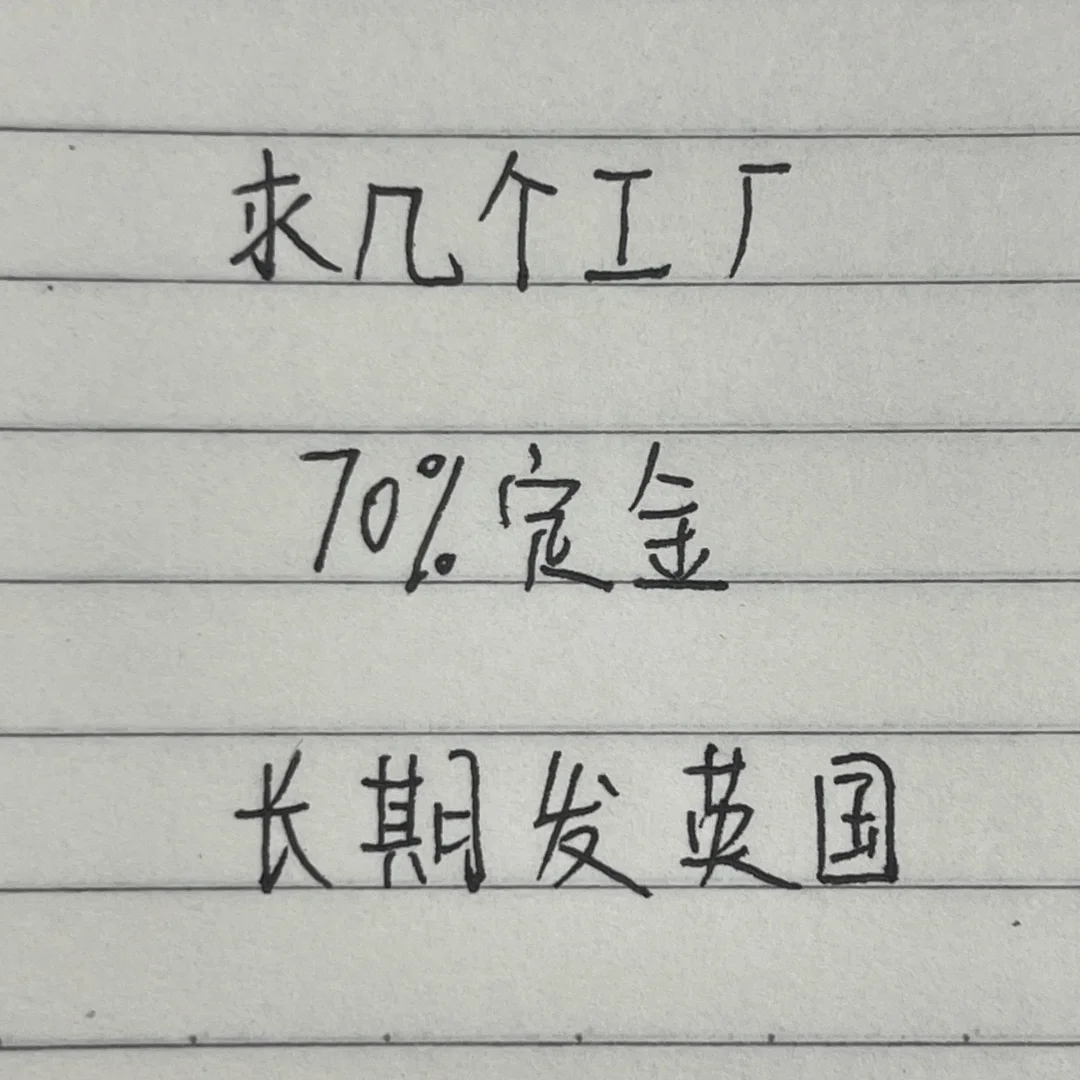 求几个工厂
70%定金
长期发英国